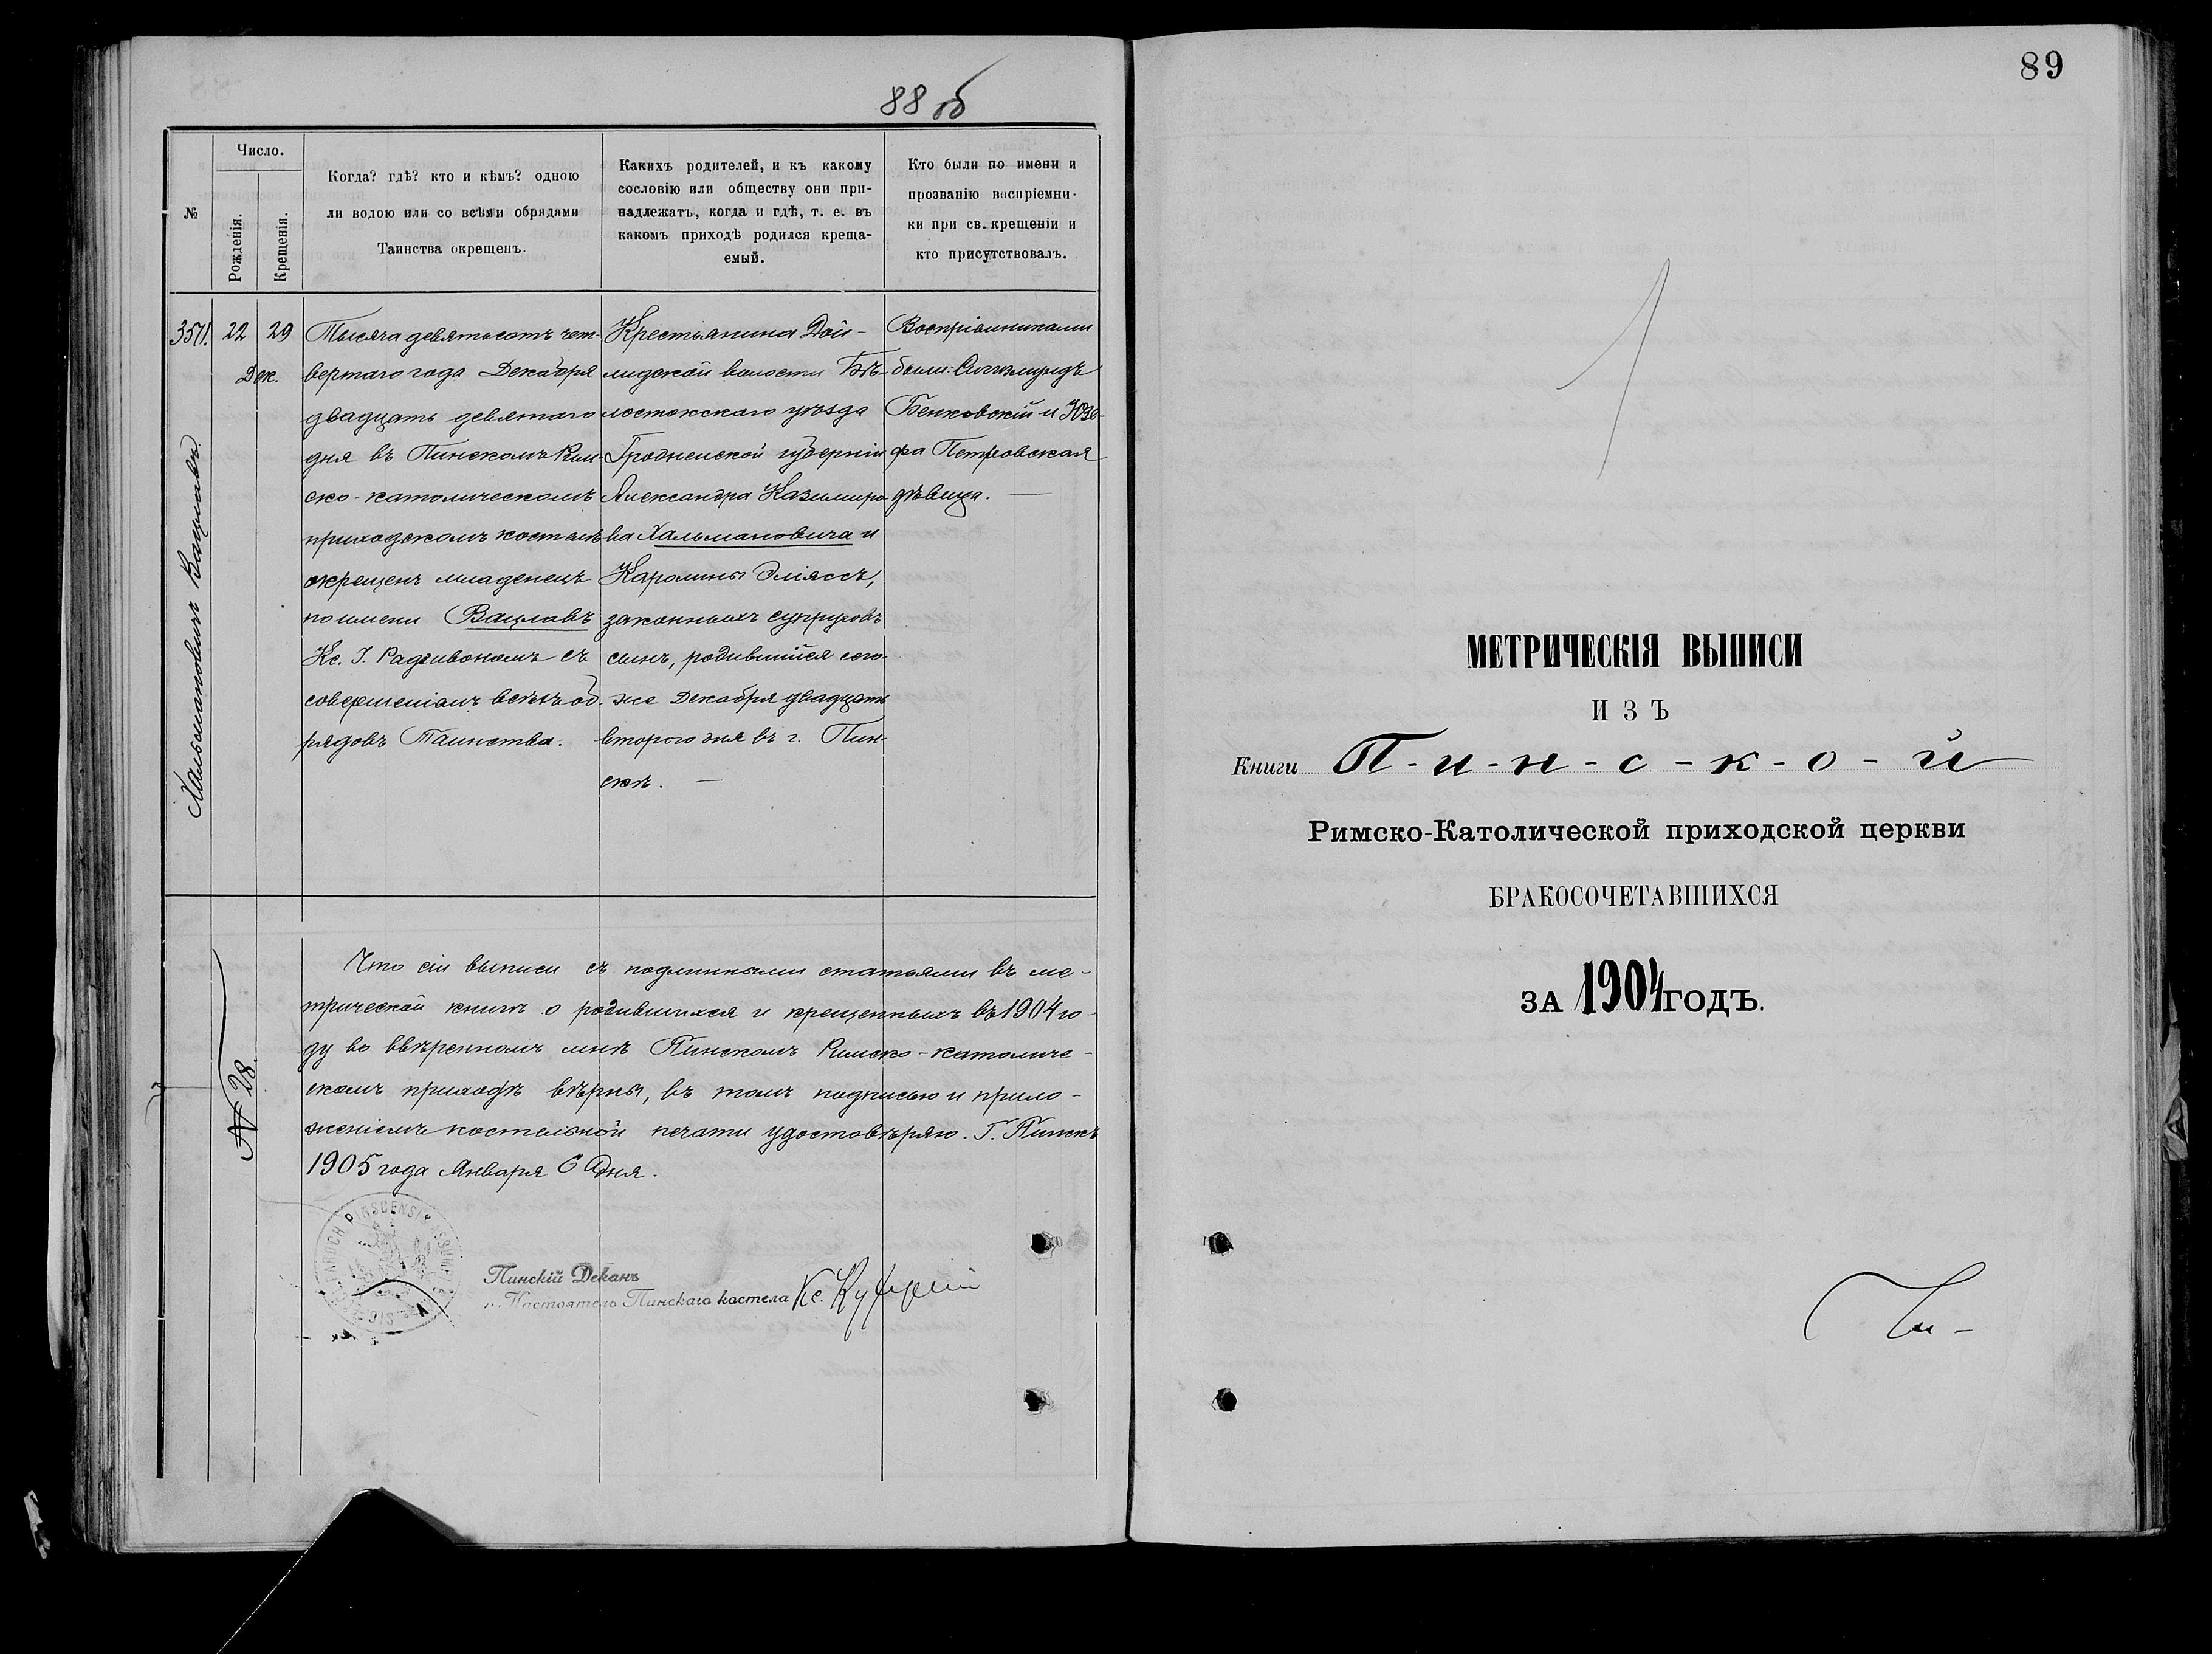 88 об
№
Число.
Рожденія.
Крещенія.
Когда? гдѣ? кто и кѣмъ? одною
ли водою или со всѣми обрядами
Таинства окрещенъ.
Какихъ родителей, и къ какому
сословію или обществу они при-
надлежатъ, когда и гдѣ, т. е. въ
какомъ приходѣ родился креща-
емый.
Кто были по имени и
прозванію воспріемни-
ки при св. крещеніи и
кто присутствовалъ.
22
29
Дек.
Хальмановичъ Вацлавъ
Тысяча девятьсотъ чет-
вертаго года Декабря
двадцать девятаго
дня въ Пинскомъ Рим-
ско-католическомъ
приходскомъ костелѣ
окрещенъ младенецъ
по имени Вацлавъ
Кс. І. Радзивономъ съ
совершеніемъ всѣхъ об-
рядовъ Таинства.
Крестьянина Дой-
лидской волости Бѣ-
лостокскаго уѣзда
Гродненской губерніи
Александра Казимиро-
ва Хальмановича и
Каролины Эліяссъ,
законныхъ супруговъ
сынъ, родившійся сего-
же Декабря двадцать
второго дня въ г. Пин-
скѣ. —
Воспріемниками
были: Сигизмундъ
Бенковскій и Юзе-
фа Петровская
дѣвица. —
№ 28.
Что сіи выписи съ подлинными статьями въ ме-
трической книгѣ о родившихся и крещенныхъ въ 1904 го-
ду во ввѣренномъ мнѣ Пинскомъ Римско-католиче-
скомъ приходѣ вѣрны, въ томъ подписью и прило-
женіемъ костельной печати удостовѣряю. Г. Пинскъ
1905 года Января 6 дня.
PINSCENSIS
Пинскій Деканъ
и Настоятель Пинскаго костела Кс.
89
1
МЕТРИЧЕСКІЯ ВЫПИСИ
ИЗЪ
Книги П-и-н-с-к-о-й
Римско-Католической приходской церкви
БРАКОСОЧЕТАВШИХСЯ
ЗА 1904 ГОДЪ.